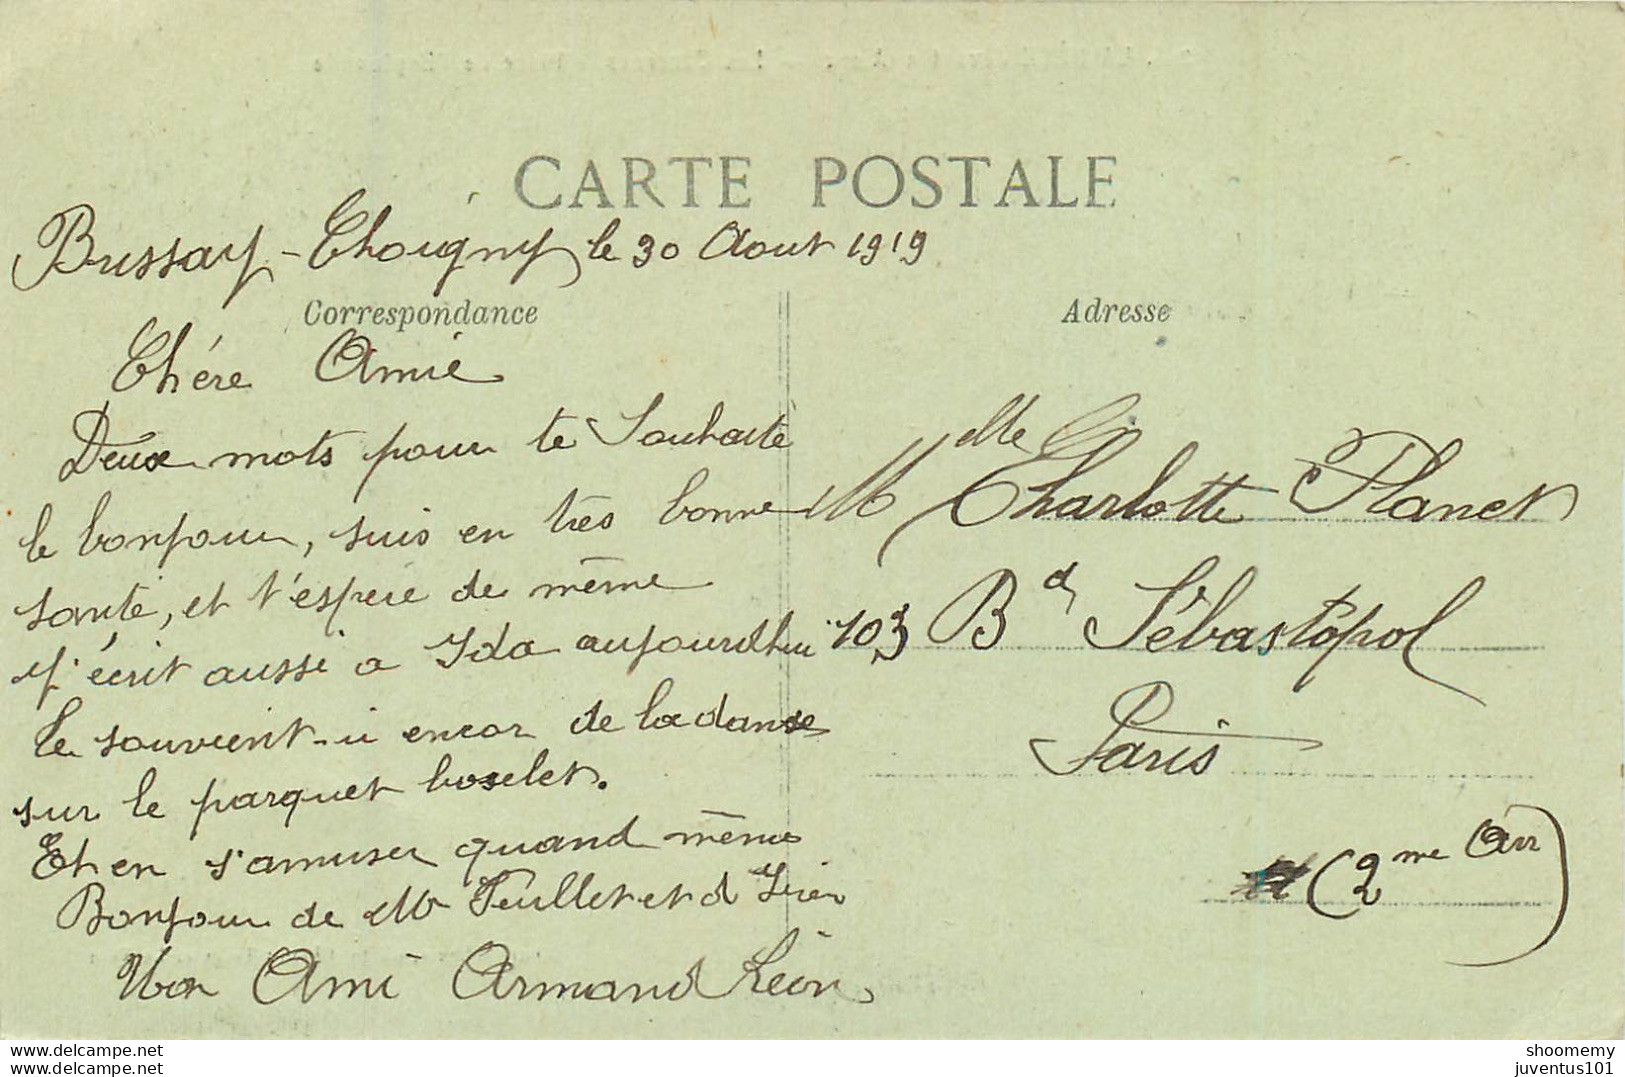 CARTE POSTALE
Bussay-Choigny le 30 Aout 1919
Correspondance
Adresse
Chére Amie
Deux mots pour te Souhaite
le bonjour, suis en très bonne
santé, et t'espere de même
J'écrit aussi a Ida aujourdhui
te souvient-i encor de la danse
sur le parquet boselet.
Et en s'amuser quand même
Bonjour de Mr Feuillet et d
Mon Ami Armand Léon
Mdlle Charlotte Planet
103 Bd Sébastopol
Paris
(2me Arr)
www.delcampe.net
shoomemy
juventus101